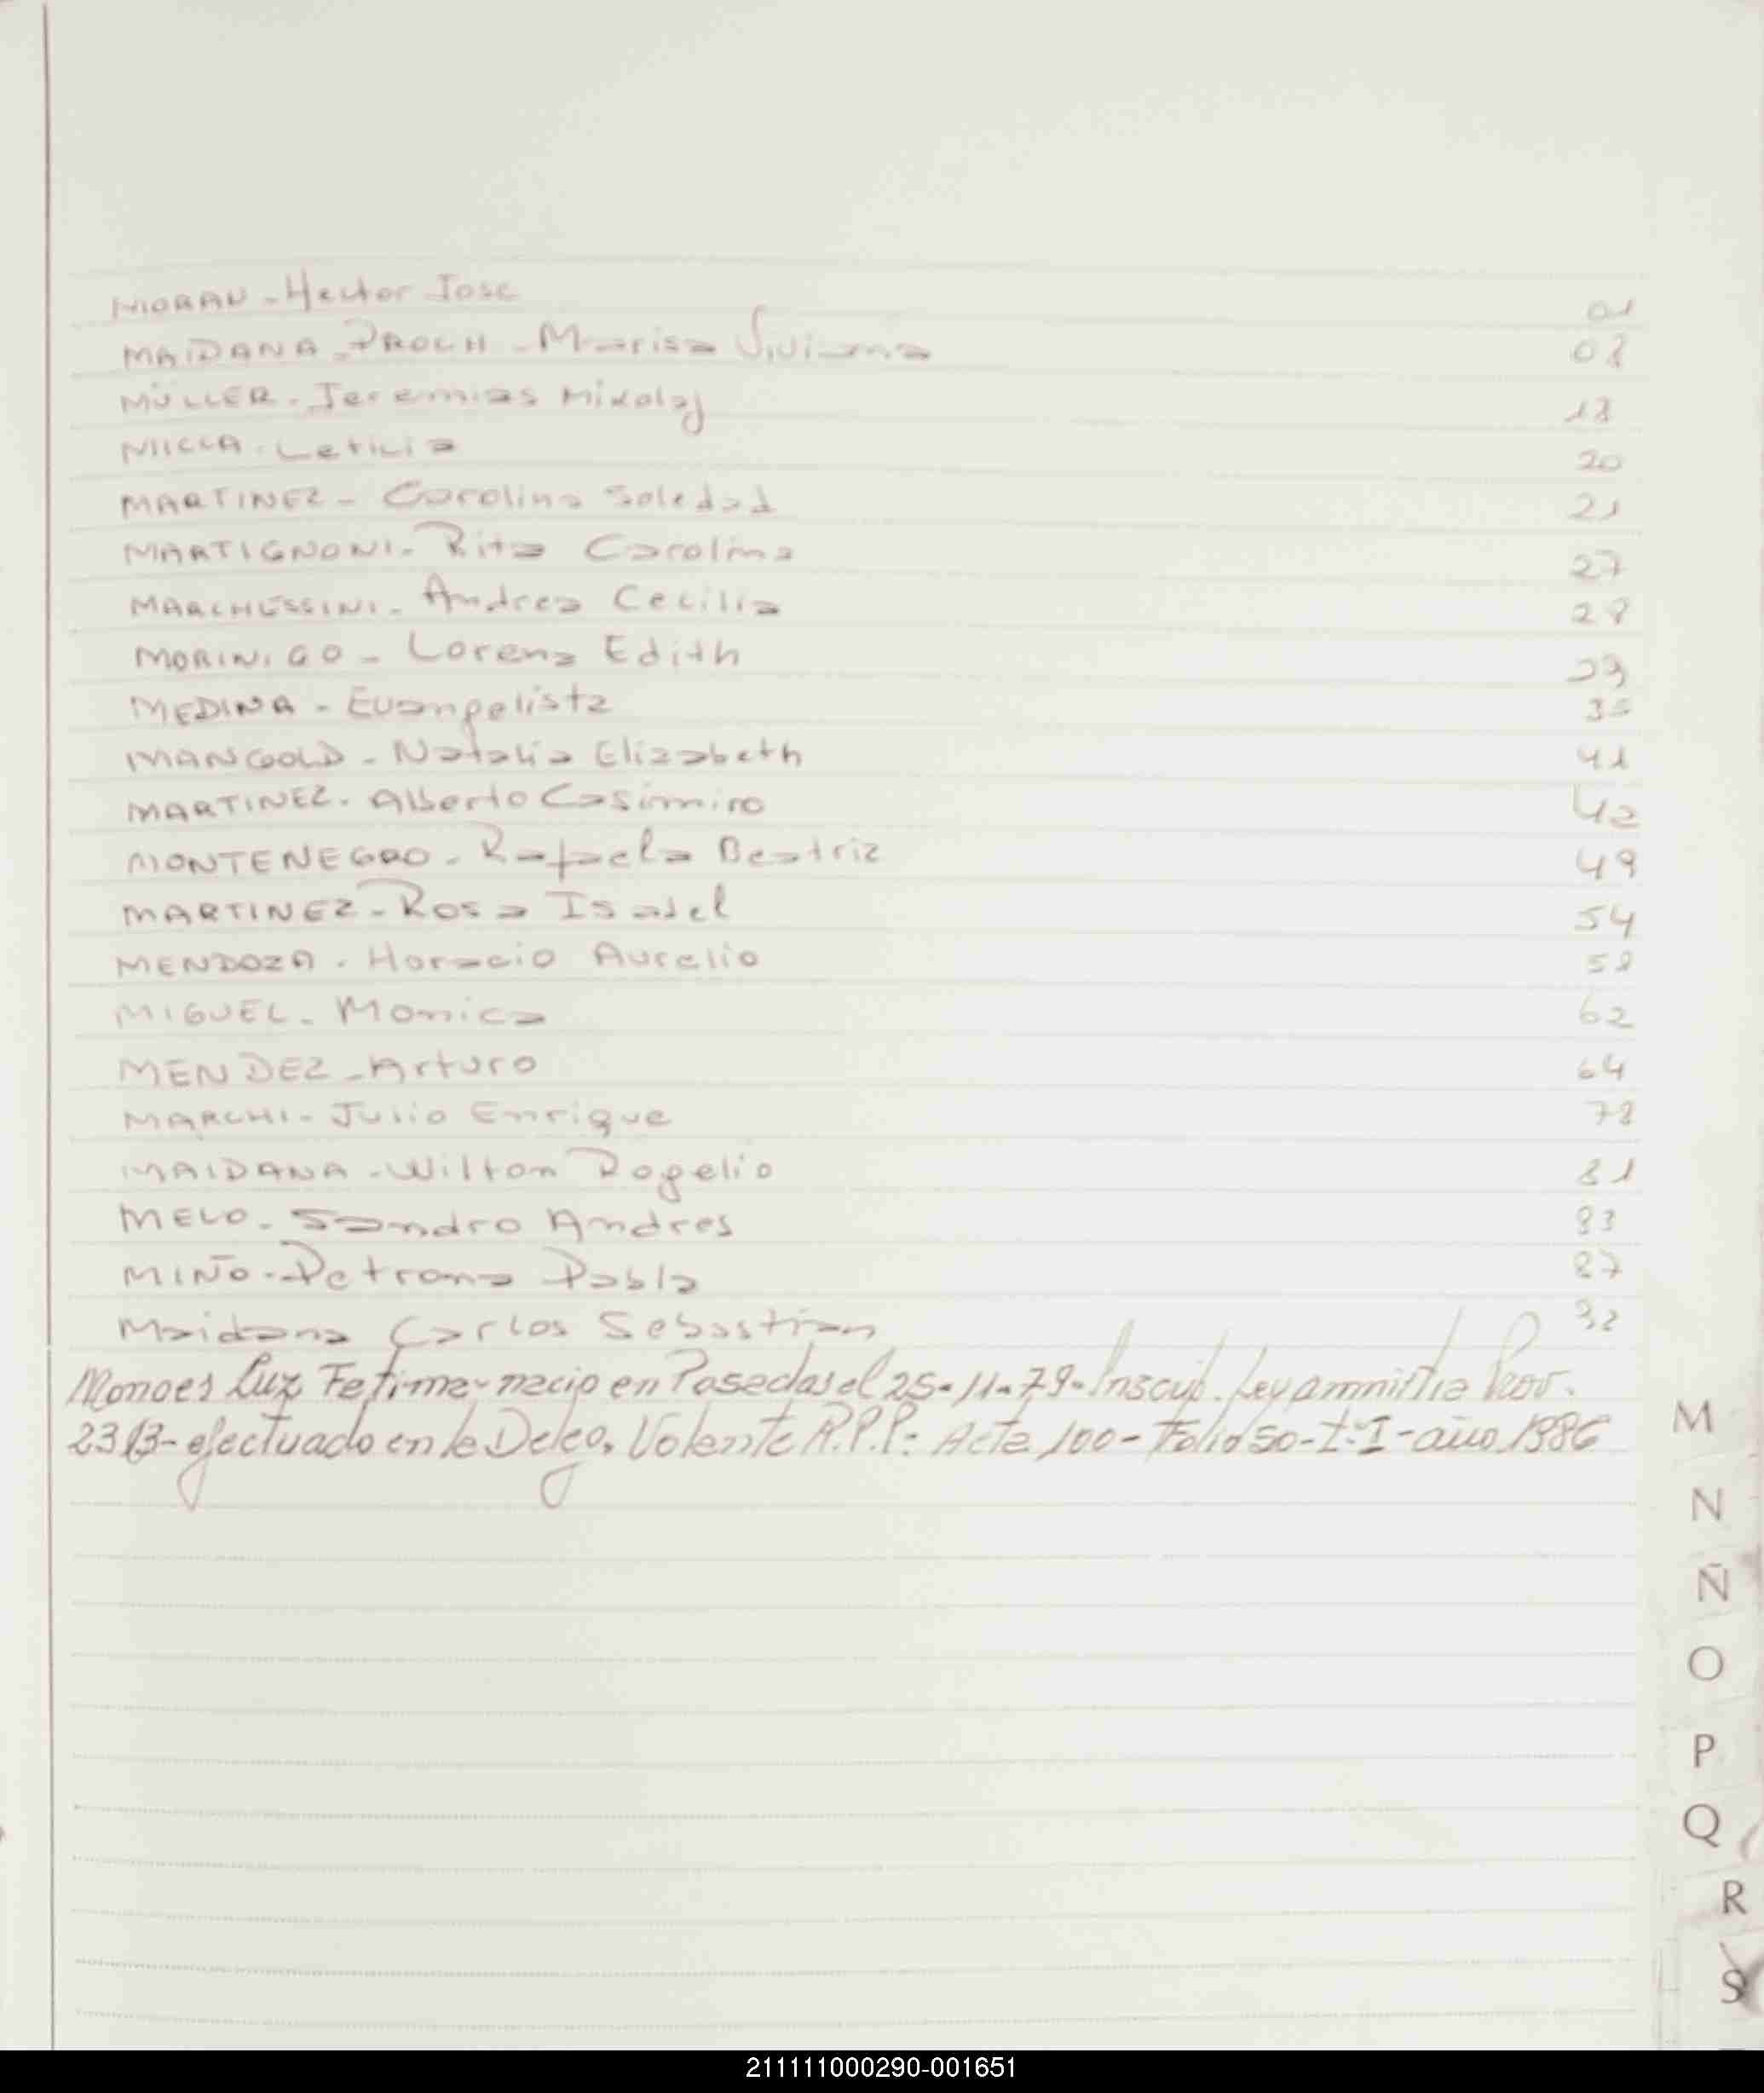 MORAN - Hector Jose 01
MAIDANA PROCH - Marisa Viviana 08
MÜLLER - Jeremias Mikolaj 18
MICCA - Leticia 20
MARTINEZ - Carolina Soledad 21
MARTIGNONI - Rita Carolina 27
MARCHESSINI - Andrea Cecilia 28
MORINIGO - Lorena Edith 29
MEDINA - Evangelista 35
MANGOLD - Natalia Elizabeth 41
MARTINEZ - Alberto Casimiro 42
MONTENEGRO - Rafaela Beatriz 49
MARTINEZ - Rosa Isabel 54
MENDOZA - Horacio Aurelio 58
MIGUEL - Monica 62
MENDEZ - Arturo 64
MARCHI - Julio Enrique 78
MAIDANA - Wilton Rogelio 81
MELO - Sandro Andres 83
MIÑO - Petrona Pabla 87
Maidana Carlos Sebastian 92
Luz Fatima - nacio en Posadas el 25-11-79 - Inscrip. Ley amnistia Prov.
efectuado en la Deleg. Volante R.P.P: Acta 100 - Folio 50 - t: I - año 1986
M
N
Ñ
O
P
Q
R
S
211111000290-001651